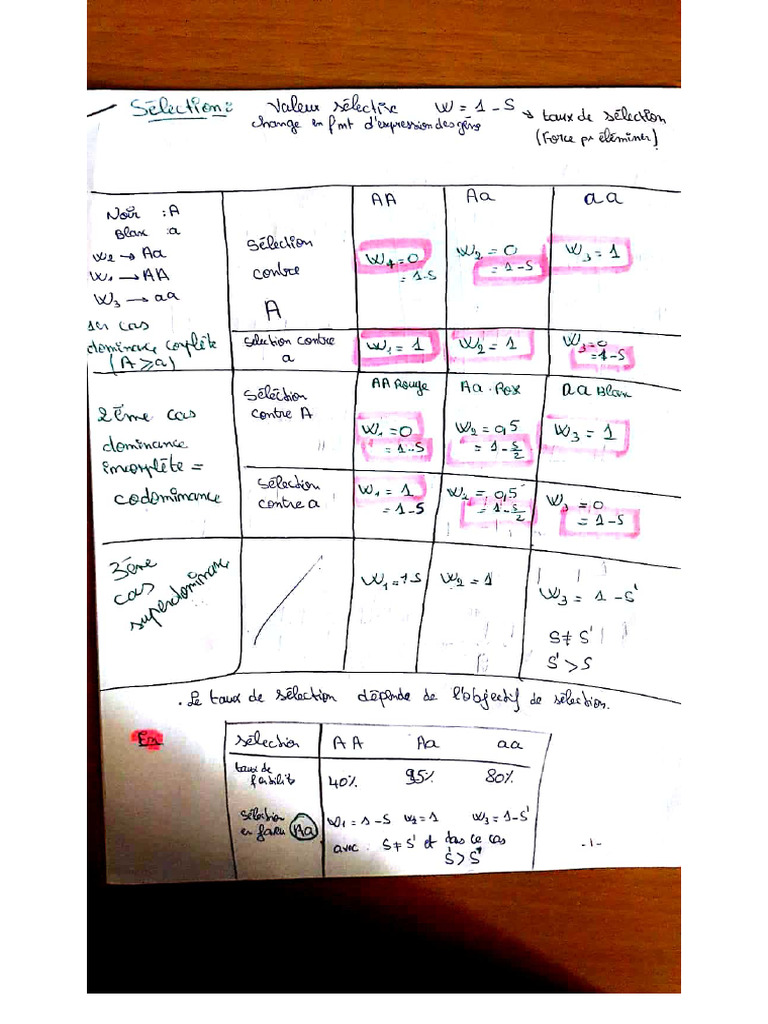 Sélection : Valeur sélective W = 1 - S → taux de sélection
change en fmt d'expression des gène (Force pr éliminer)
Noir : A
Blanx : a
W2 → Aa
W1 → AA
W3 → aa
1er cas
dominance complète
(A ⩾ a)
AA Aa aa
Sélection
contre
A
W1 = 0
= 1-S
W2 = 0
= 1-S
W3 = 1
Selection contre
a
W1 = 1
W2 = 1
W3 = 0
= 1-S
2éme cas
dominance
incomplète =
codominance
AA Rouge Aa . Rose aa Blanx
Sélection
contre A
W1 = 0
= 1-S
W2 = 0,5
= 1-S/2
W3 = 1
Sélection
contre a
W1 = 1
= 1-S
W2 = 0,5
= 1-S/2
W3 = 0
= 1-S
3éme
cas
superdominance
W1 = 1-S
W2 = 1
W3 = 1-S'
S ≠ S'
S' > S
. Le taux de sélection dépends de l'objectif de sélection.
Ex
Sélection AA Aa aa
taux de
40% 95% 80%
Sélection
en faveu Aa
W1 = 1-S W2 = 1 W3 = 1-S'
avec : S ≠ S' et dans ce cas
S > S'
-1-